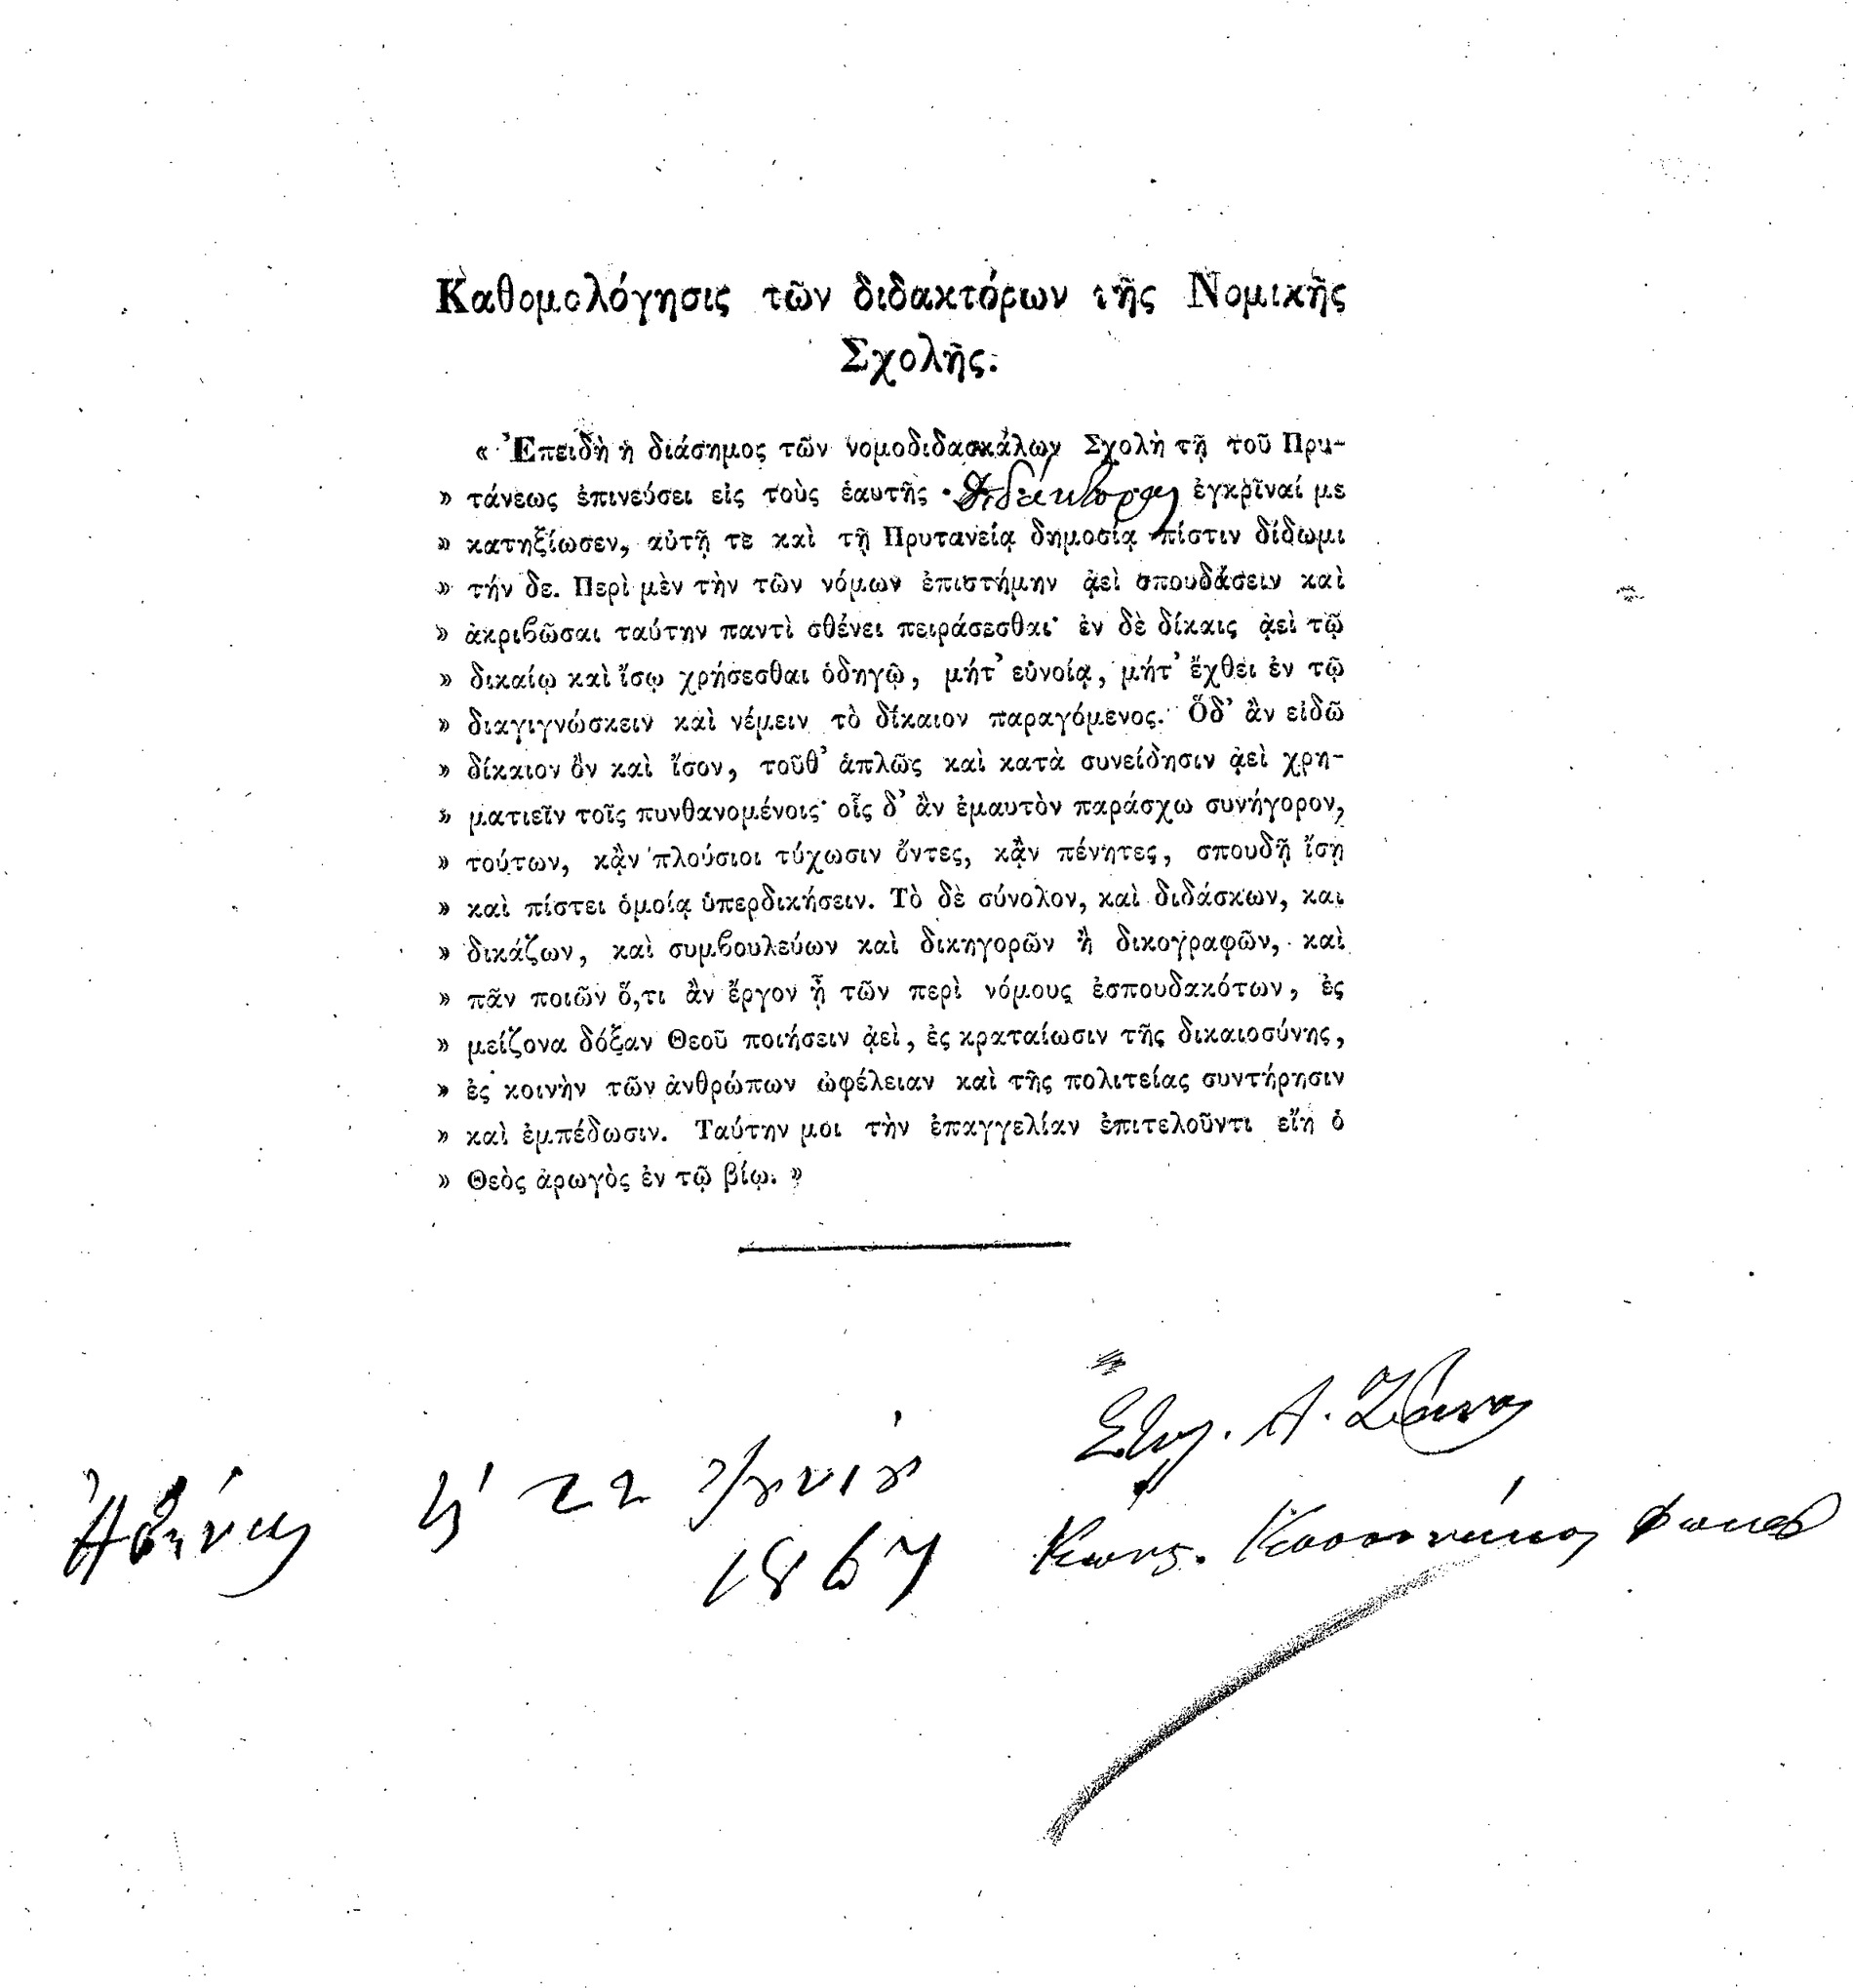 Καθομολόγησις τῶν διδακτόρων τῆς Νομικῆς
Σχολῆς.
« Ἐπειδὴ ἡ διάσημος τῶν νομοδιδασκάλων Σχολὴ τῇ τοῦ Πρυ-
» τάνεως ἐπινεύσει εἰς τοὺς ἑαυτῆς διδάκτορας ἐγκρῖναί με
» κατηξίωσεν, αὐτῇ τε καὶ τῇ Πρυτανείᾳ δημοσίᾳ πίστιν δίδωμι
» τήν δε. Περὶ μὲν τὴν τῶν νόμων ἐπιστήμην ᾀεὶ σπουδάσειν καὶ
» ἀκριβῶσαι ταύτην παντὶ σθένει πειράσεσθαι· ἐν δὲ δίκαις ᾀεὶ τῷ
» δικαίῳ καὶ ἴσῳ χρήσεσθαι ὁδηγῷ, μήτ’ εὐνοίᾳ, μήτ’ ἔχθει ἐν τῷ
» διαγιγνώσκειν καὶ νέμειν τὸ δίκαιον παραγόμενος. Ὅδ’ ἂν εἰδῶ
» δίκαιον ὂν καὶ ἴσον, τοῦθ’ ἁπλῶς καὶ κατὰ συνείδησιν ᾀεὶ χρη-
» ματιεῖν τοῖς πυνθανομένοις· οἷς δ’ ἂν ἐμαυτὸν παράσχω συνήγορον,
» τούτων, κᾂν πλούσιοι τύχωσιν ὄντες, κᾂν πένητες, σπουδῇ ἴσῃ
» καὶ πίστει ὁμοίᾳ ὑπερδικήσειν. Τὸ δὲ σύνολον, καὶ διδάσκων, και
» δικάζων, καὶ συμβουλεύων καὶ δικηγορῶν ἢ δικογραφῶν, καὶ
» πᾶν ποιῶν ὅ,τι ἂν ἔργον ᾖ τῶν περὶ νόμους ἐσπουδακότων, ἐς
» μείζονα δόξαν Θεοῦ ποιήσειν ᾀεὶ, ἐς κραταίωσιν τῆς δικαιοσύνης,
» ἐς κοινὴν τῶν ἀνθρώπων ὠφέλειαν καὶ τῆς πολιτείας συντήρησιν
» καὶ ἐμπέδωσιν. Ταύτην μοι τὴν ἐπαγγελίαν ἐπιτελοῦντι εἴη ὁ
» Θεὸς ἀρωγὸς ἐν τῷ βίῳ. »
Α.
Ἀθήνας 22 Ἰουνίου
1867 Κωνς.